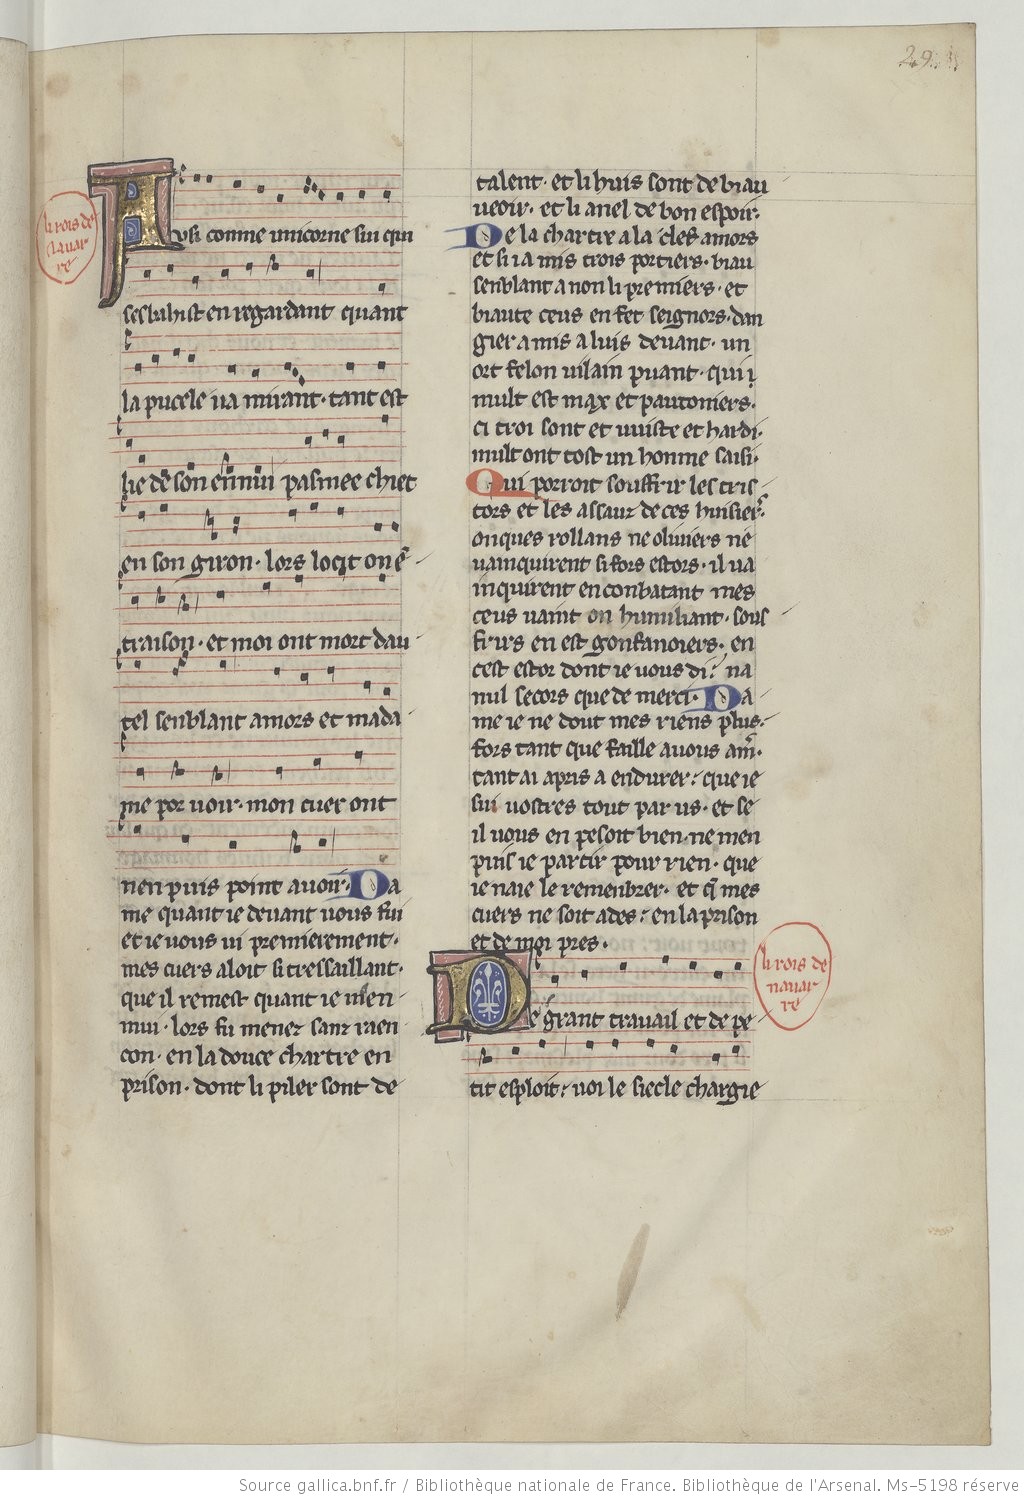 29
li rois de
navar
re
Ausi comme unicorne sui qui
sesbahist en regardant quant
la pucele va mirant· tant est
lie de son ennui pasmee chiet
en son giron· lors locit on en
traison· et moi ont mort dau
tel senblant amors et mada
me por voir· mon cuer ont
nen puis point avoir· Da
me quant ie devant vous fui
et ie vous vi premierement·
mes cuers aloit si tressaillant·
que il remest quant ie men
mui· lors fu menez sanz raen
con· en la douce chartre en
prison· dont li piler sont de
talent· et li huis sont de biau
veoir· et li anel de bon espoir·
De la chartre a la clef amors
et si i a mis trois portiers· biau
senblant a non li premiers· et
biaute ceus en fet seignors· dan
gier a mis a luis devant· un
ort felon vilain puant· qui i
mult est max et pautoniers·
ci troi sont et viuste et hardi·
mult ont tost un homme saisi·
Qui porroit souffrir les tris
tors et les assauz de ces huisiers·
onques rollans ne oliviers ne
vainquirent si fors estors· il va
inquirent en conbatant mes
ceus vaint on humiliant· sous
frirs en est gonfanoiers· en
cest estor dont ie vous di· na
nul secors que de merci· Da
me ie ne dout mes riens plus·
fors tant que faille a vous amer·
tant ai apris a endurer· que ie
sui vostres tout par us· et se
il vous en pesoit bien· ne men
puis ie partir pour rien· que
ie naie le remenbrer· et que mes
cuers ne soit ades· en la prison
et de moi pres·
li rois de
navar
re
De grant travail et de pe
tit esploit· voi le siecle chargie
Source gallica.bnf.fr / Bibliothèque nationale de France. Bibliothèque de l'Arsenal. Ms-5198 réserve